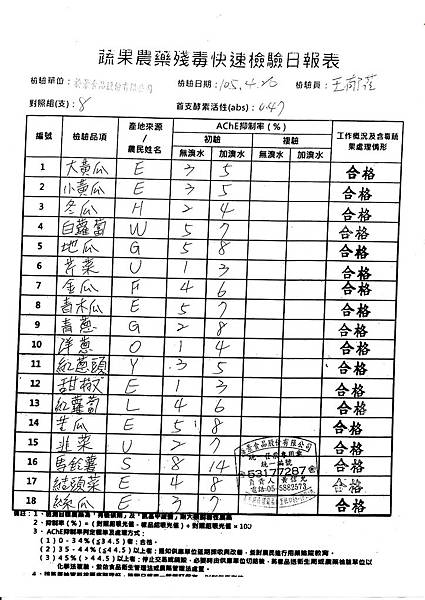 蔬果農藥殘毒快速檢驗日報表
檢驗單位： 食品股份有限公司 檢驗日期：105.4.20 檢驗員：王
對照組(支)：8 首支酵素活性(abs)：0.47
編號 檢驗品項 產地來源/農民姓名 AChE抑制率(%) 工作概況及含毒蔬果處理情形
初驗 複驗
無溴水 加溴水 無溴水 加溴水
1 大黃瓜 E 3 5 合格
2 小黃瓜 E 3 5 合格
3 冬瓜 H 2 4 合格
4 白蘿蔔 W 5 7 合格
5 地瓜 G 5 8 合格
6 芥菜 U 1 3 合格
7 金瓜 F 4 6 合格
8 青木瓜 E 5 7 合格
9 青蔥 G 2 8 合格
10 洋蔥 O 1 4 合格
11 紅蔥頭 Y 3 5 合格
12 甜椒 E 1 3 合格
13 紅蘿蔔 L 4 6 合格
14 苦瓜 E 5 8 合格
15 韭菜 U 2 7 合格
16 馬鈴薯 S 8 14 合格
17 結頭菜 E 4 8 合格
18 絲瓜 E 3 7 合格
食品股份有限公司
統一發票專用章
統一編號
53177287
負責人：黃信
電話:05-5882573
2．抑制率(%)＝(對照組吸光值－樣品組吸光值)÷對照組吸光值×100
3．AChE抑制率判定標準及處理方式：
(1)0－34%(≦34.5)者：合格。
(2)35－44%(≦44.5)以上者：
(3)45%(＞44.5)以上者：